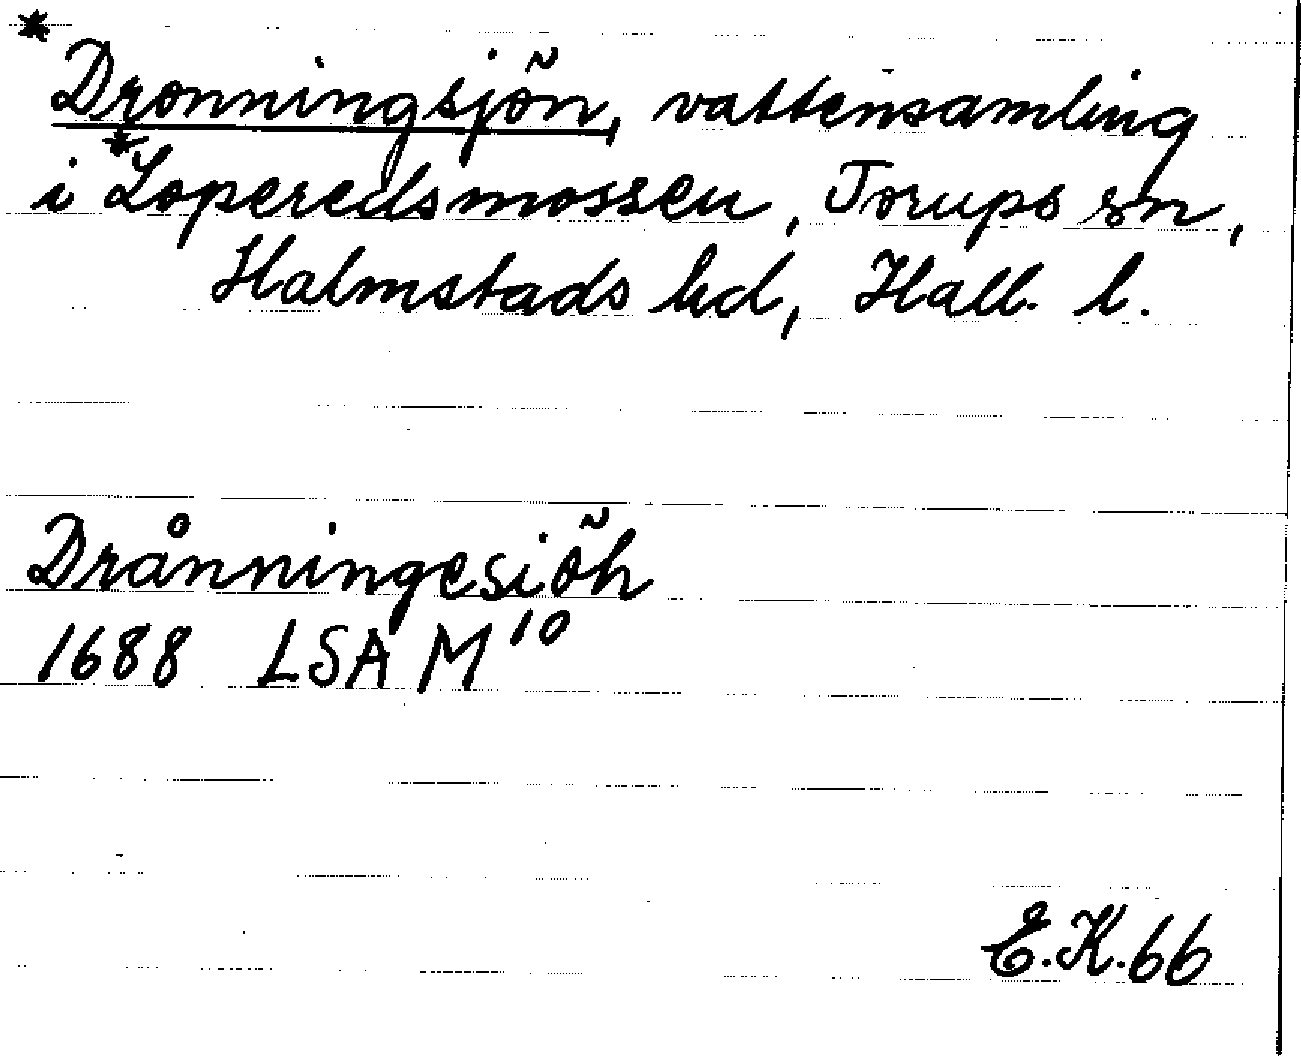 *Dronningsjön, vattensamling
i *Loperedsmossen, Torups sn,
Halmstads hd, Hall. l.
Drånningesiöh
1688 LSA M10
E.K.66